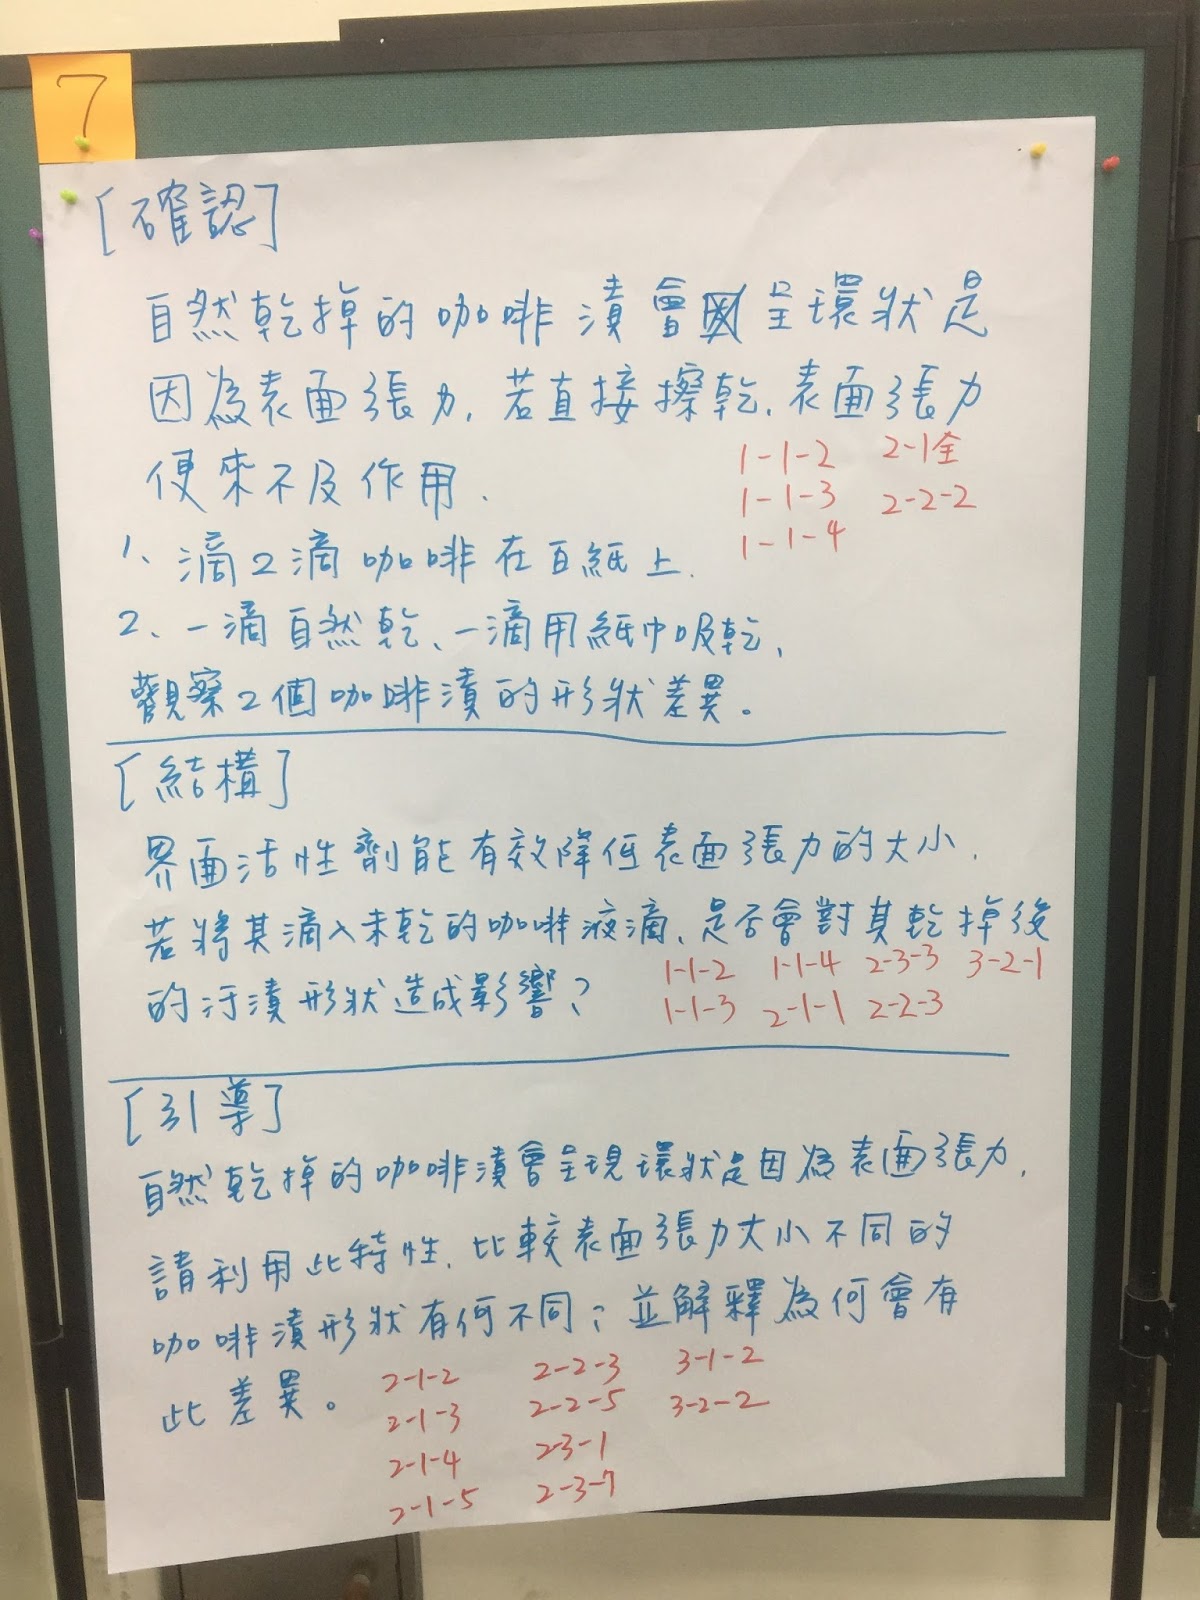 7
[確認]
自然乾掉的咖啡漬會呈環狀是
因為表面張力,若直接擦乾,表面張力
便來不及作用.
1-1-2 2-1全
1-1-3 2-2-2
1-1-4
1、滴2滴咖啡在百紙上.
2、一滴自然乾、一滴用紙巾吸乾,
觀察2個咖啡漬的形狀差異。
[結構]
界面活性劑能有效降低表面張力的大小.
若將其滴入未乾的咖啡液滴,是否會對其乾掉後
的汙漬形狀造成影響?
1-1-2 1-1-4 2-3-3 3-2-1
1-1-3 2-1-1 2-2-3
[引導]
自然乾掉的咖啡漬會呈現環狀是因為表面張力,
請利用此特性,比較表面張力大小不同的
咖啡漬形狀有何不同?並解釋為何會有
此差異。
2-1-2 2-2-3 3-1-2
2-1-3 2-2-5 3-2-2
2-1-4 2-3-1
2-1-5 2-3-7